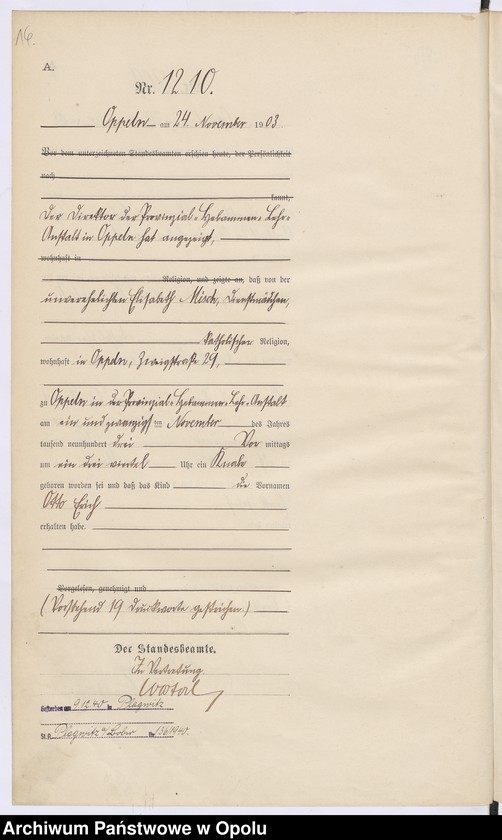 A.
Nr. 1210.
Oppeln am 24. November 1903.
Vor dem unterzeichneten Standesbeamten erschien heute, der Persönlichkeit
nach
kannt,
Der Direktor der Provinzial-Hebammen-Lehr-
Anstalt in Oppeln hat angezeigt,
wohnhaft in
Religion, und zeigte an, daß von der
unverehelichten Elisabeth Misch, Dienstmädchen,
katholischer Religion,
wohnhaft in Oppeln, Zweigstraße 29,
zu Oppeln in der Provinzial-Hebammen-Lehr-Anstalt
am ein und zwanzigsten November des Jahres
tausend neunhundert drei Vor mittags
um ein drei viertel Uhr ein Knabe
geboren worden sei und daß das Kind die Vornamen
Otto Erich
erhalten habe.
Vorgelesen, genehmigt und
(Vorstehend 19 Druckworte gestrichen.)
Der Standesbeamte.
In Vertretung
Gestorben am 9.12.40 in Plagwitz
St.A. Plagwitz a/Bober Nr. 136/1940.
Archiwum Państwowe w Opolu